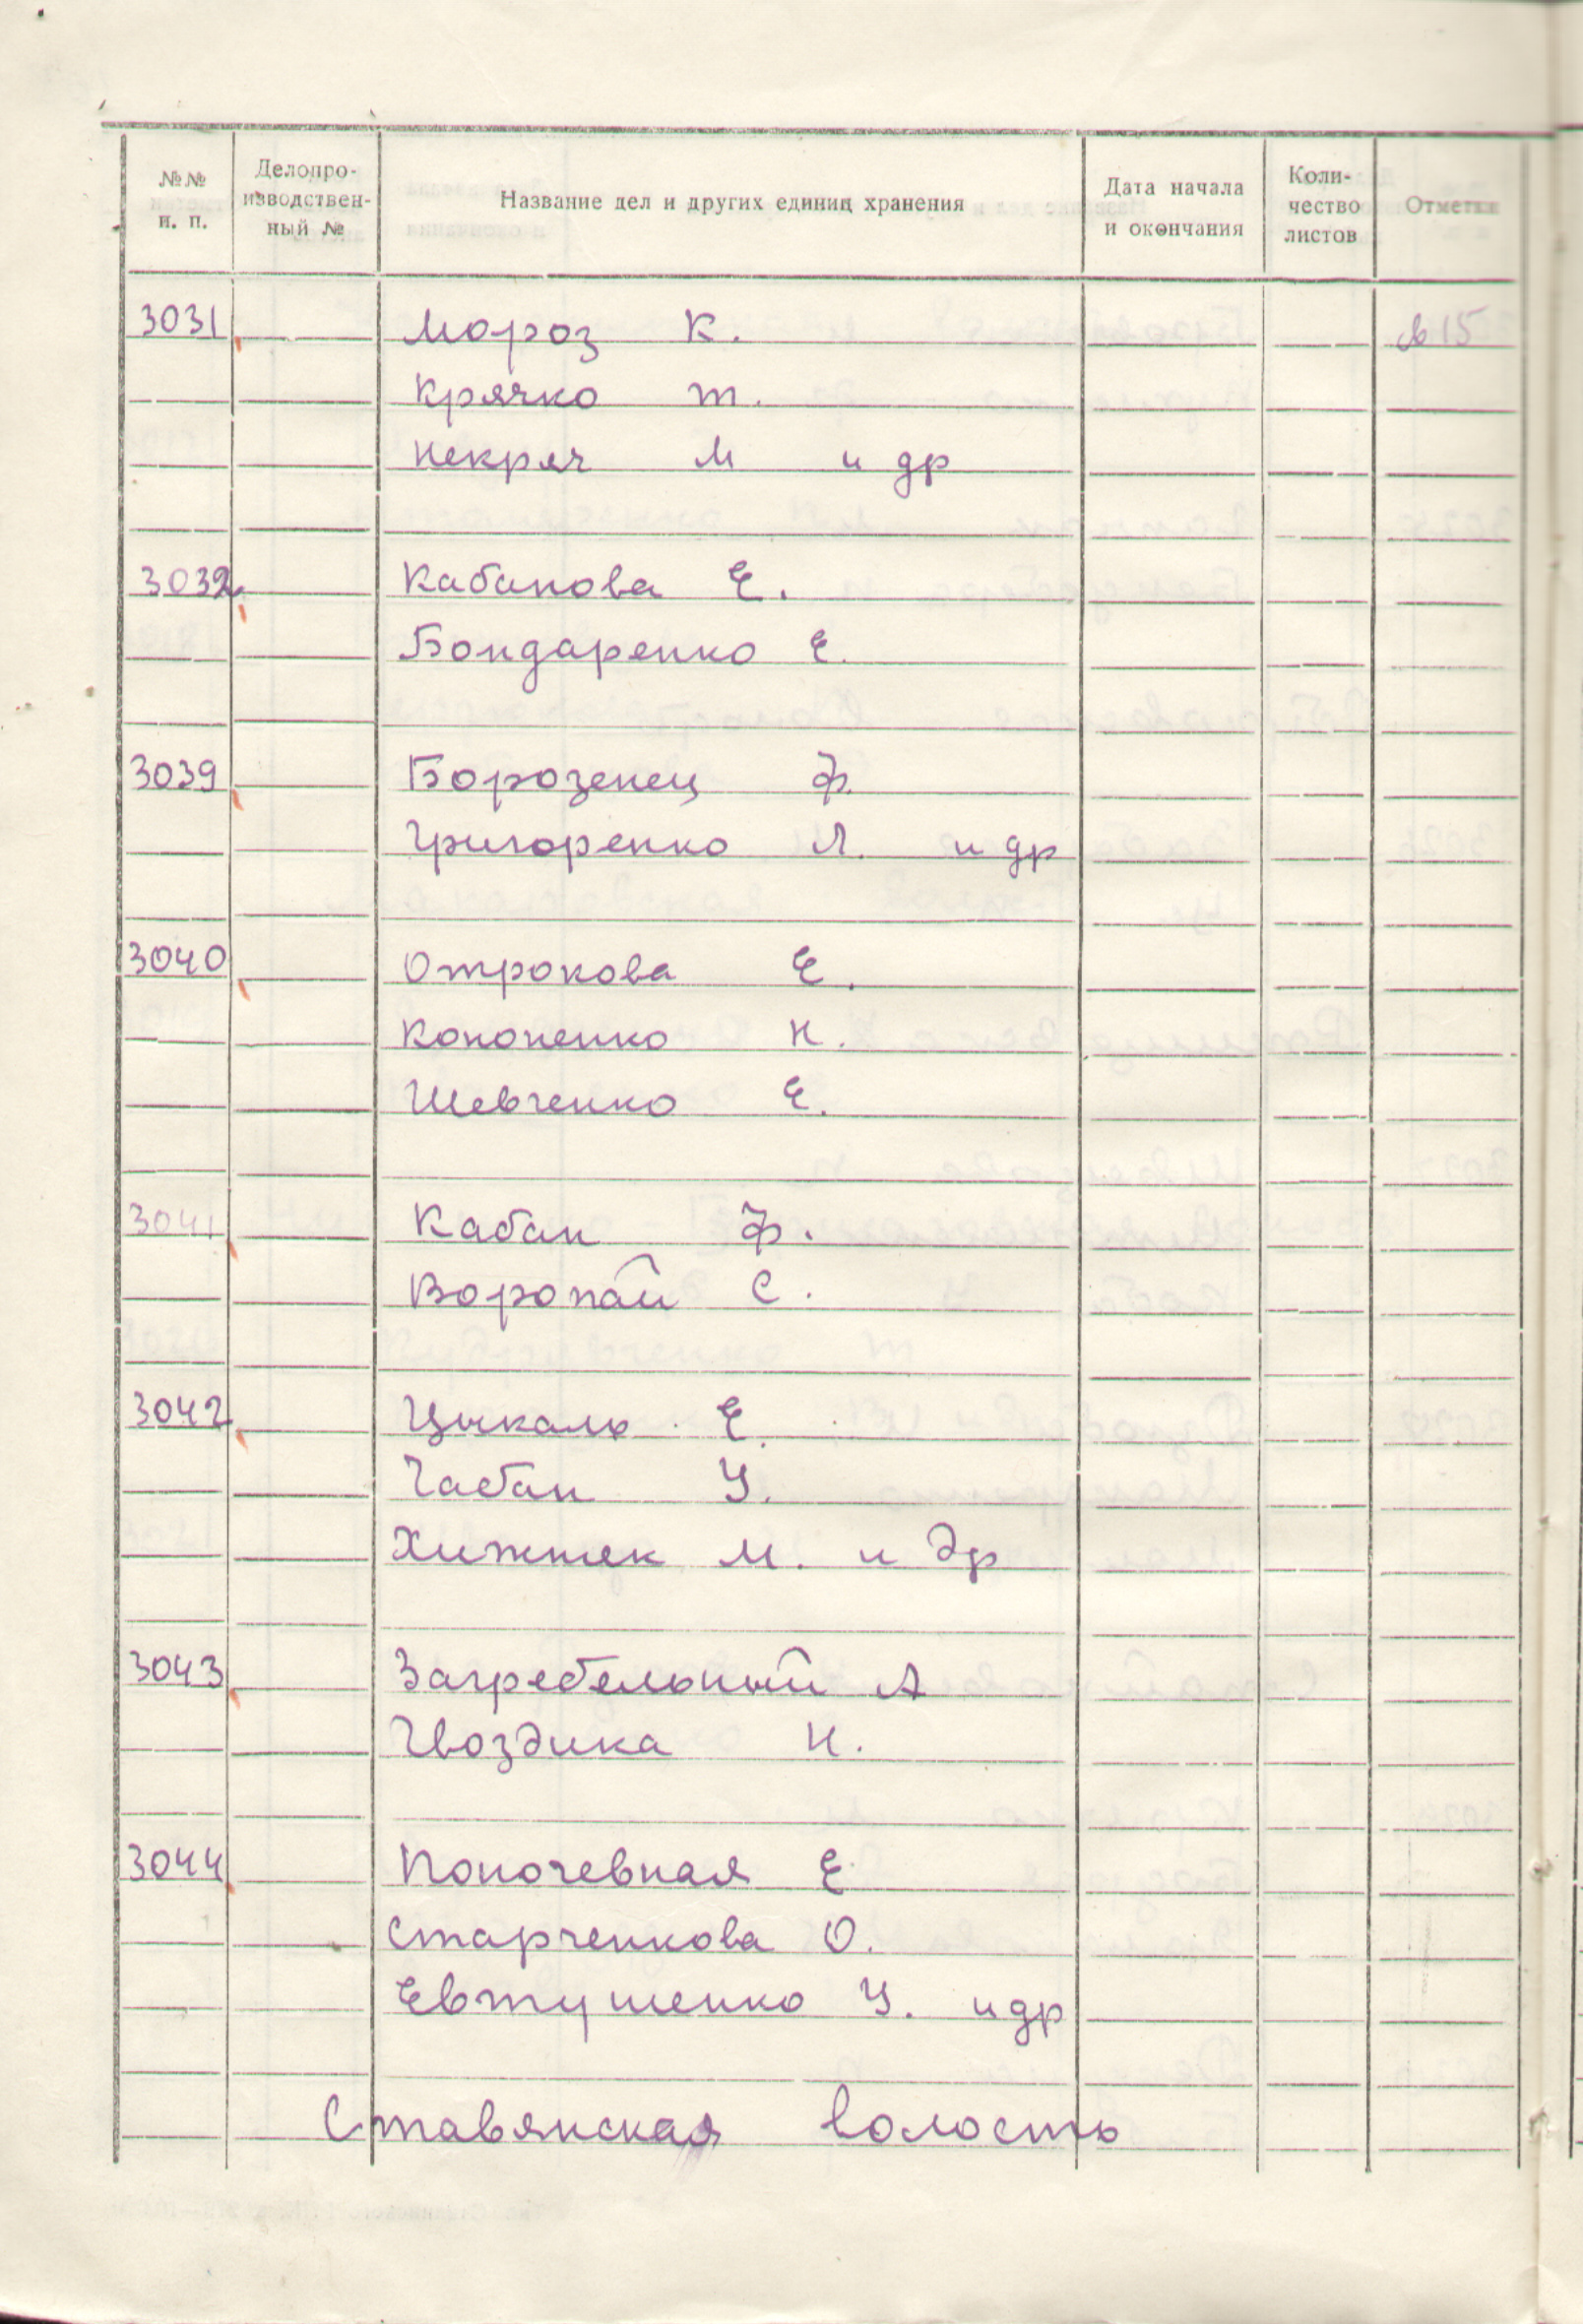 №№ п. п.
Делопро-
изводствен-
ный №
Название дел и других единиц хранения
Дата начала
и окончания
Коли-
чество
листов
Отметки
3031 Мороз К. св 15
Крячко Т.
Некряч М и др
3032 Кабанова Е.
Бондаренко Е.
3039 Борозенец Ф.
Григоренко Л. и др
3040 Отрокова Е.
Кононенко Н.
Шевченко Е.
3041 Кабан Ф.
Воропай С.
3042 Цыкаль Е.
Чабан У.
Хижняк М. и др
3043 Загребельный А
Гвоздика Н.
3044 Поночевная Е
Старченкова О.
Евтушенко У. и др
Ставянская волость